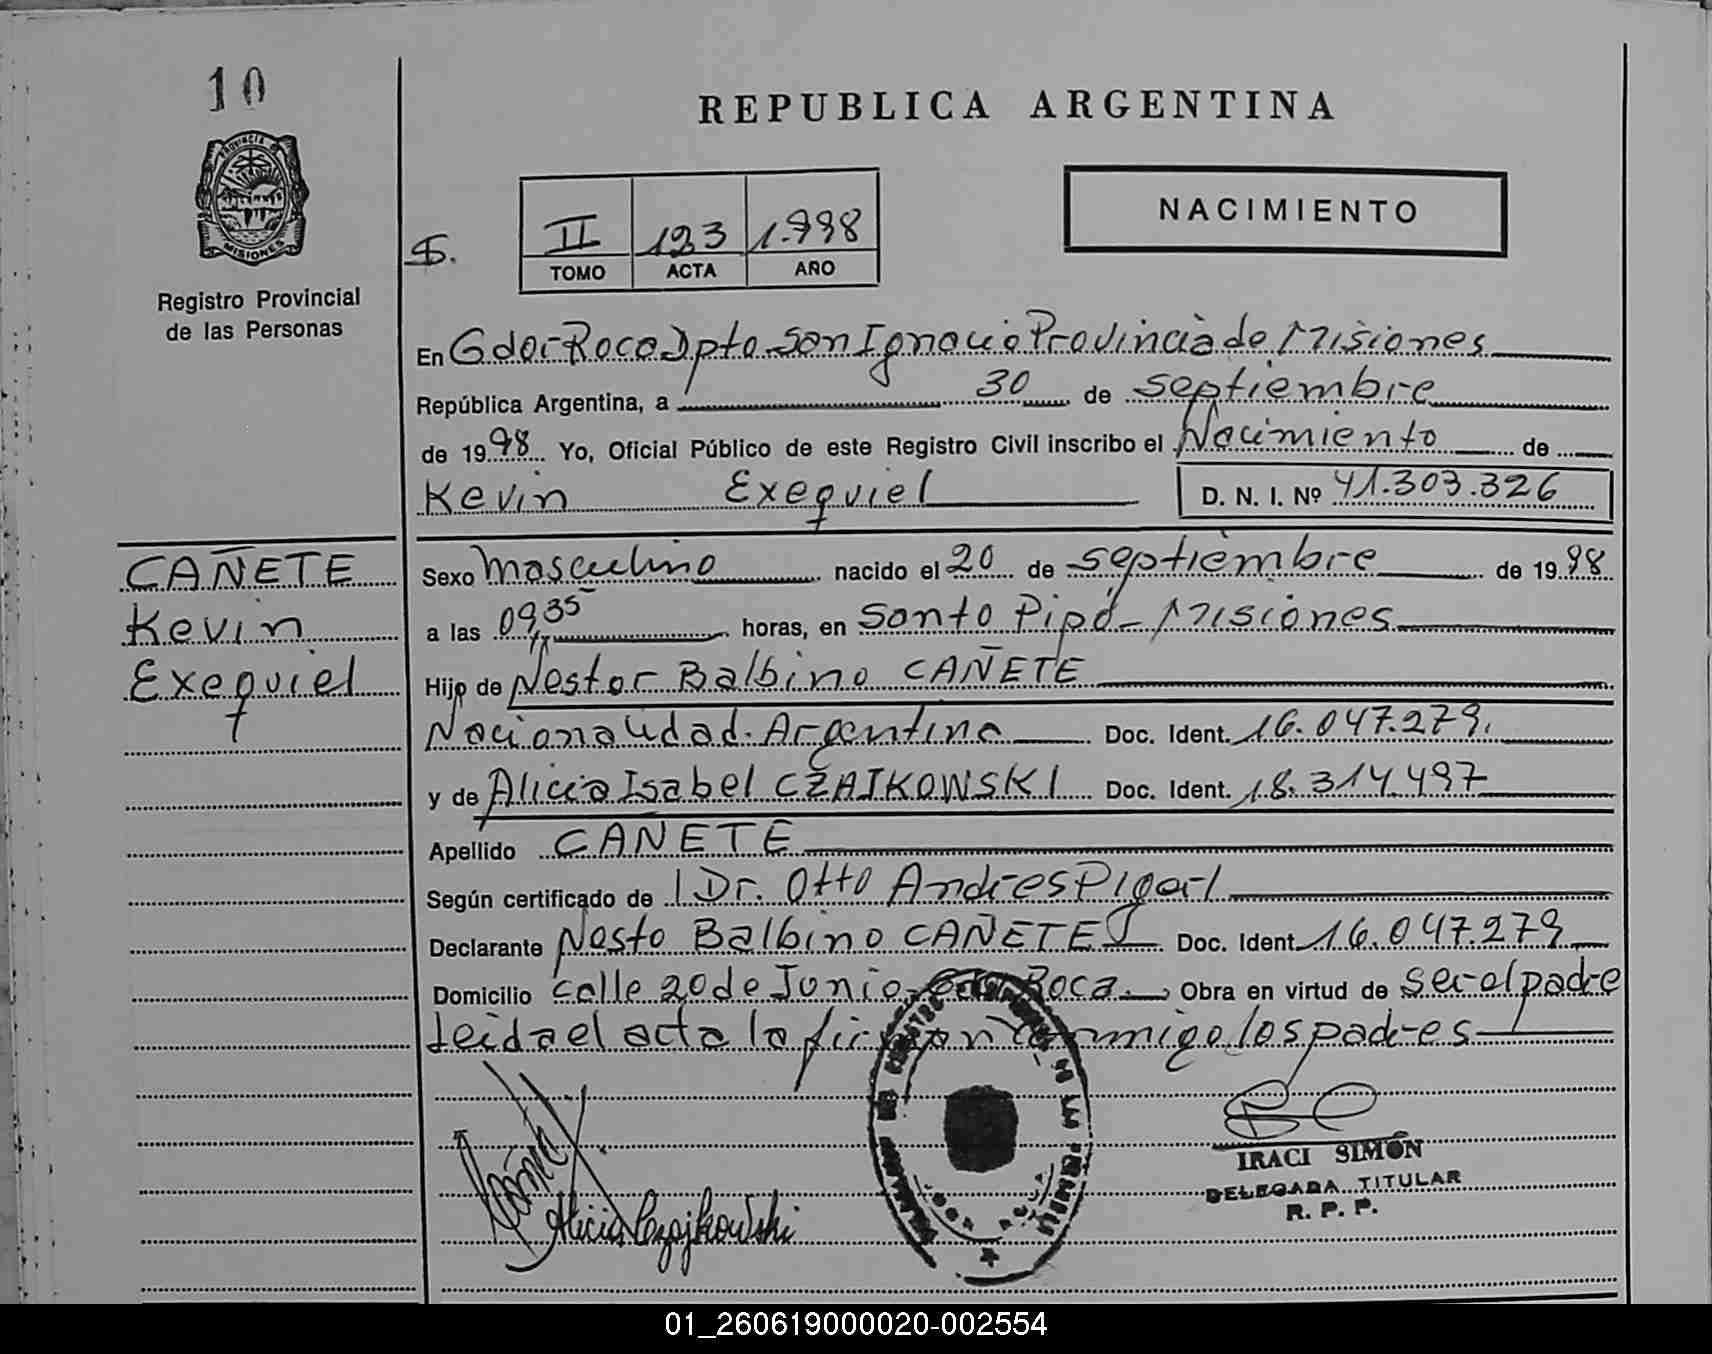 10
REPUBLICA ARGENTINA
PROVINCIA DE
MISIONES
Registro Provincial
de las Personas
NACIMIENTO
II 123 1.998
TOMO ACTA AÑO
En Gdor Roca Dpto. San Ignacio Provincia de Misiones
República Argentina, a 30 de septiembre
de 1998 Yo, Oficial Público de este Registro Civil inscribo el Nacimiento de
Kevin Exequiel D. N. I. Nº 41.303.326
CAÑETE
Kevin
Exequiel
Sexo masculino nacido el 20 de septiembre de 1998
a las 09,35 horas, en Santo Pipó - Misiones
Hijo de Nestor Balbino CAÑETE
Nacionalidad Argentina Doc. Ident. 16.047.279.
y de Alicia Isabel CZAJKOWSKI Doc. Ident. 18.314.497
Apellido CAÑETE
Según certificado de l Dr. Otto Andres
Declarante Nesto Balbino CAÑETE Doc. Ident. 16.047.279
Domicilio calle 20 de Junio Roca. Obra en virtud de ser el padre
leida el acta la firman conmigo los padres
Alicia Czajkowski
IRACI SIMÓN
DELEGADA TITULAR
R. P. P.
01_260619000020-002554